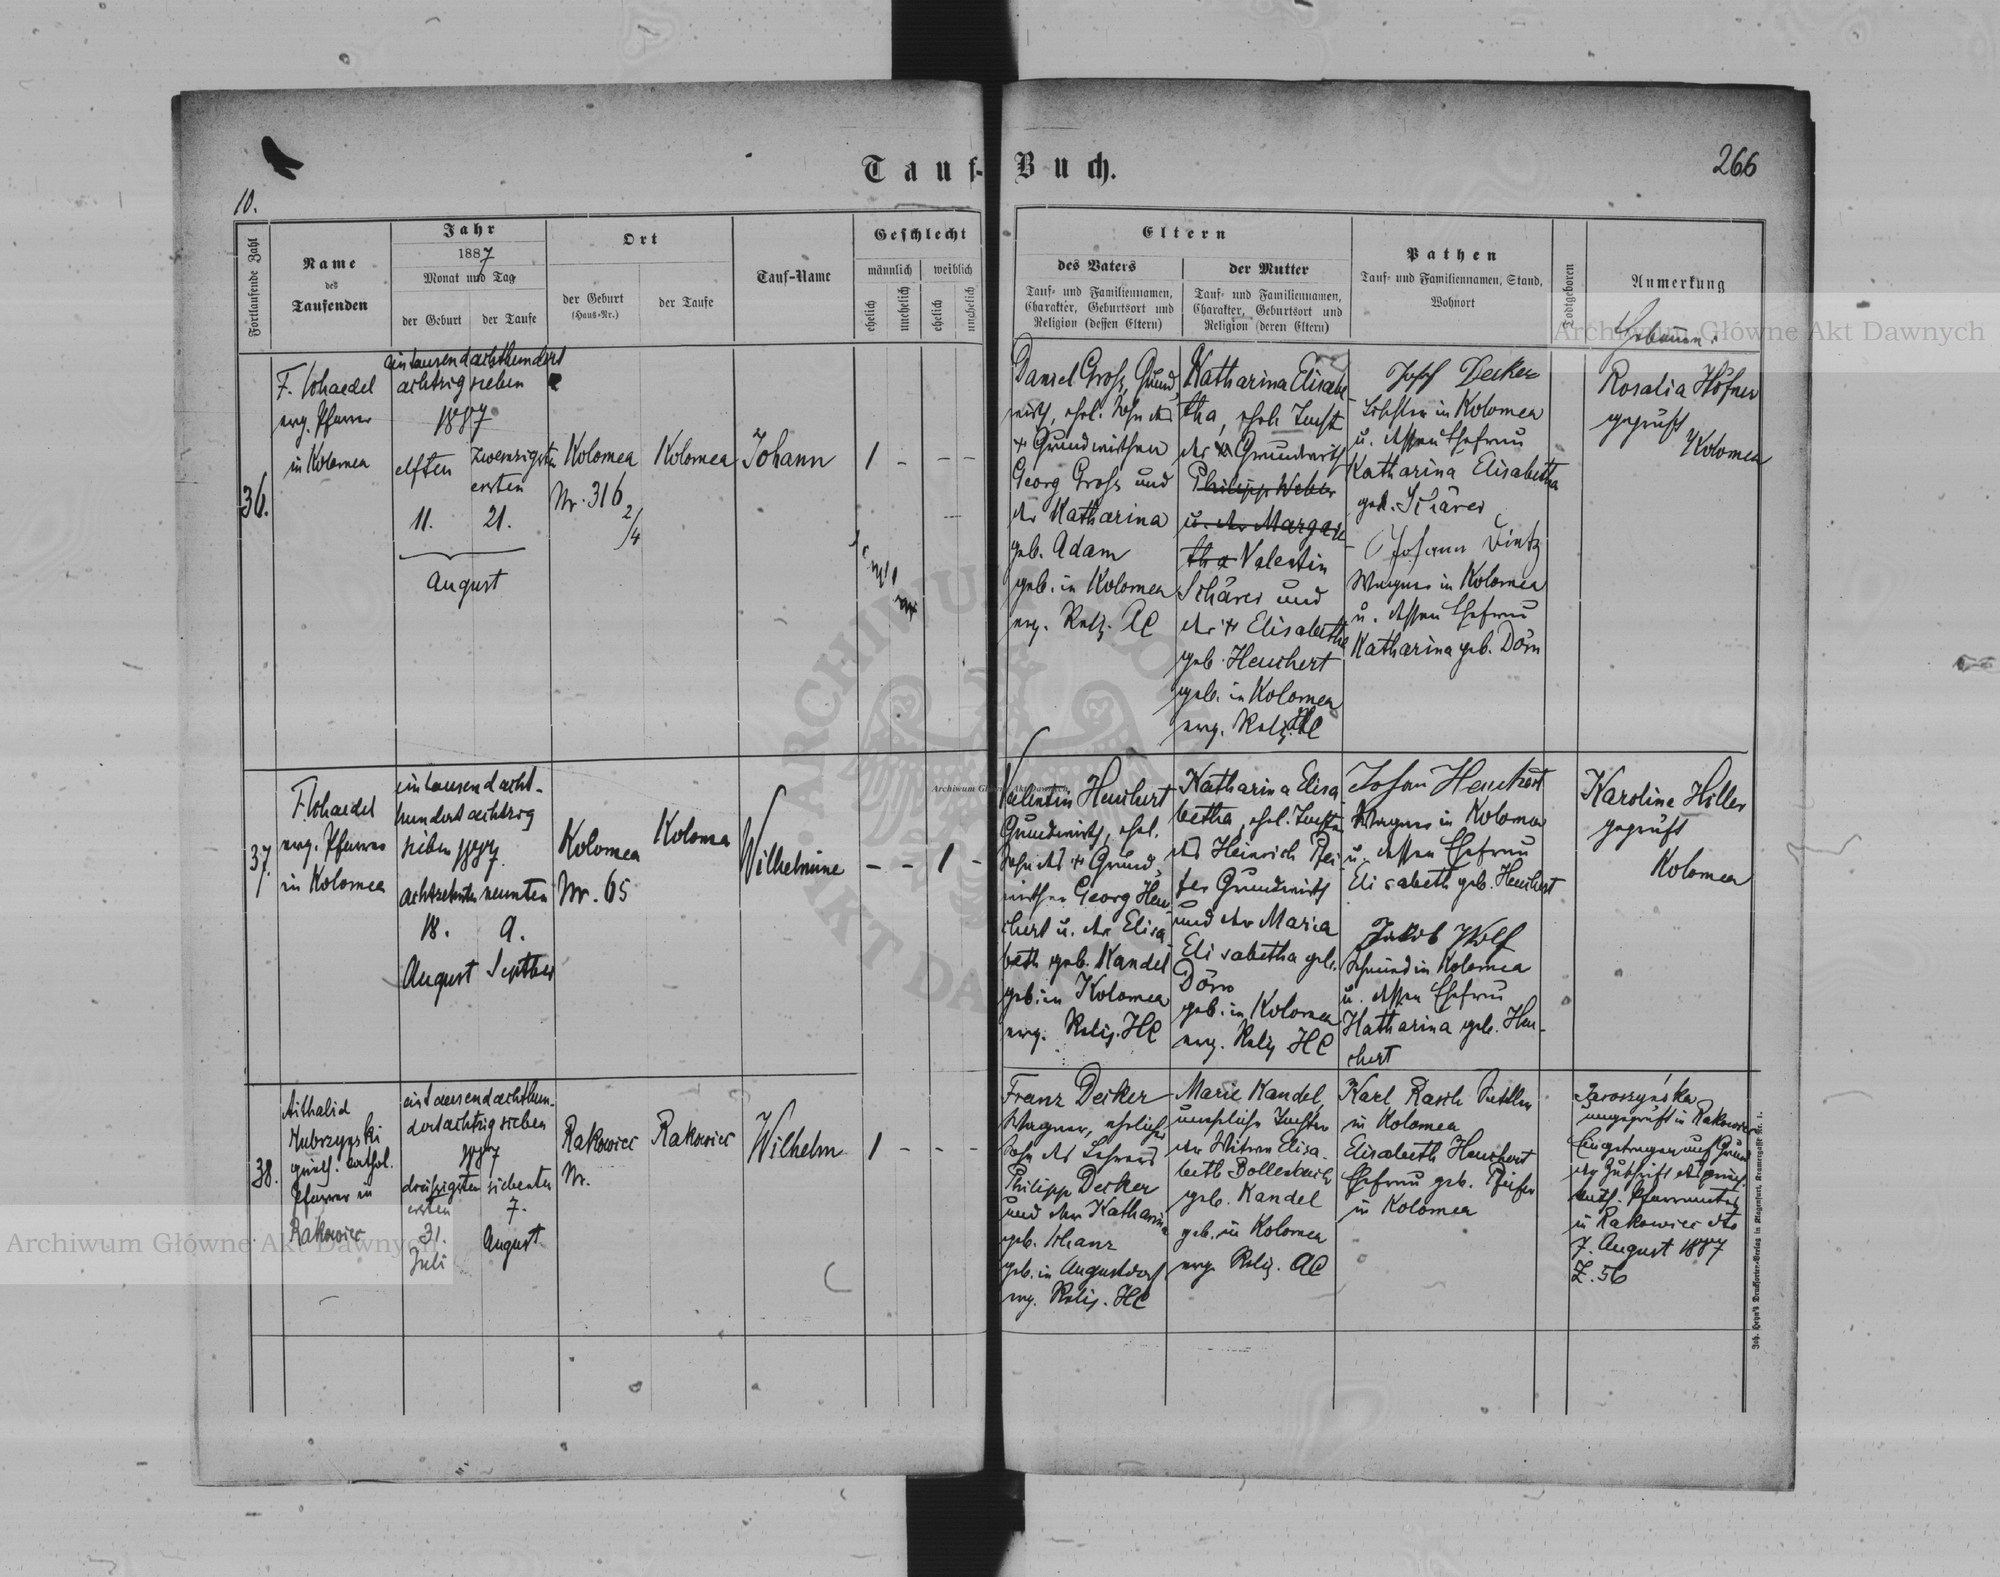 Tauf-Buch.
266
10.
Fortlaufende Zahl
Name
des
Taufenden
Jahr
1887
Monat und Tag
der Geburt
der Taufe
Ort
der Geburt
(Haus-Nr.)
der Taufe
Tauf-Name
Geschlecht
männlich
weiblich
ehelich
unehelich
ehelich
unehelich
Eltern
des Vaters
Tauf- und Familiennamen,
Charakter, Geburtsort und
Religion (dessen Eltern)
der Mutter
Tauf- und Familiennamen,
Charakter, Geburtsort und
Religion (deren Eltern)
Pathen
Tauf- und Familiennamen, Stand,
Wohnort
Todtgeboren
Anmerkung
36.
evg. Pfarrer
in Kolomea
eintausendachthundert
achtzig sieben
1887
elften
zwanzigsten
ersten
11.
21.
August
Kolomea
Nr. 316
2/4
Kolomea
Johann
1 - - -
Daniel Groß, Grund
wirth, ehel. Sohn des
+ Grundwirthen
Georg Groß und
der Katharina
geb. Adam
geb. in Kolomea
evg. Relg. AC
Katharina Elisabe
tha, ehel. Tocht
der Grundwirth
Philipp Weber
u. der Margare
tha Valentin
Schärer und
der + Elisabetha
geb. Heuchert
geb. in Kolomea
evg. Relg. HC
Josef Decker
in Kolomea
u. dessen Ehefrau
Katharina Elisabetha
geb. Schärer
Johann Dintz
Wagner in Kolomea
u. dessen Ehefrau
Katharina geb. Dörn
Rosalia Höfner
geprüft
Kolomea
37.
evg. Pfarrer
in Kolomea
eintausendacht-
hundertachtzig
sieben 1887.
achtzehnten
neunten
18.
9.
August
Septber
Kolomea
Nr. 65
Koloma
Wilhelmine
- - 1 -
Valentin Heuchert
Grundwirth, ehel.
Sohn des + Grund
wirthen Georg Heu
chert u. der Elisa
beth geb. Kandel
geb. in Kolomea
evg. Relig. HC
Katharina Elisa
betha, ehel. Tochter
des Heinrich Pfei
fer Grundwirth
und der Maria
Elisabetha geb.
Dörn
geb. in Kolomea
evg. Relig HC
Johann Heuchert
Wagner in Kolomea
u. dessen Ehefrau
Elisabeth geb. Heuchert
Jakob Wolf
Schmied in Kolomea
u. dessen Ehefrau
Katharina geb. Heu-
chert
Karoline Hiller
geprüft
Kolomea
38.
griech. kathol.
Pfarrer in
Rakowiec
eintausendachthun-
dertachtzig sieben
1887
dreißigsten
ersten
siebenten
31.
7.
Juli
August
Rakowiec
Nr.
Rakowiec
Wilhelm
1 - - -
Franz Decker
Wagner, ehelicher
Sohn des Lehrers
Philipp Decker
und der Katharina
geb. Schanz
geb. in Augustdorf
evg. Relig. HC
Marie Kandel,
uneheliche Tochter
der Witwe Elisa-
beth Bollenbach
geb. Kandel
geb. in Kolomea
evg. Relig. AC
Karl Rasch
in Kolomea
Elisabeth Heuchert
Ehefrau geb. Pfeifer
in Kolomea
Jaroszyńska
ungeprüft in Rakowiec
Eingetragen auf Grund
der Zuschrift des griech.
kath. Pfarramtes
in Rakowiec dto
7. August 1887
Z. 56
Joh. Heyn's Drucksorten-Verlag in Klagenfurt, Kramergasse Nr. 1.
Archiwum Główne Akt Dawnych
Archiwum Główne Akt Dawnych
Archiwum Główne Akt Dawnych